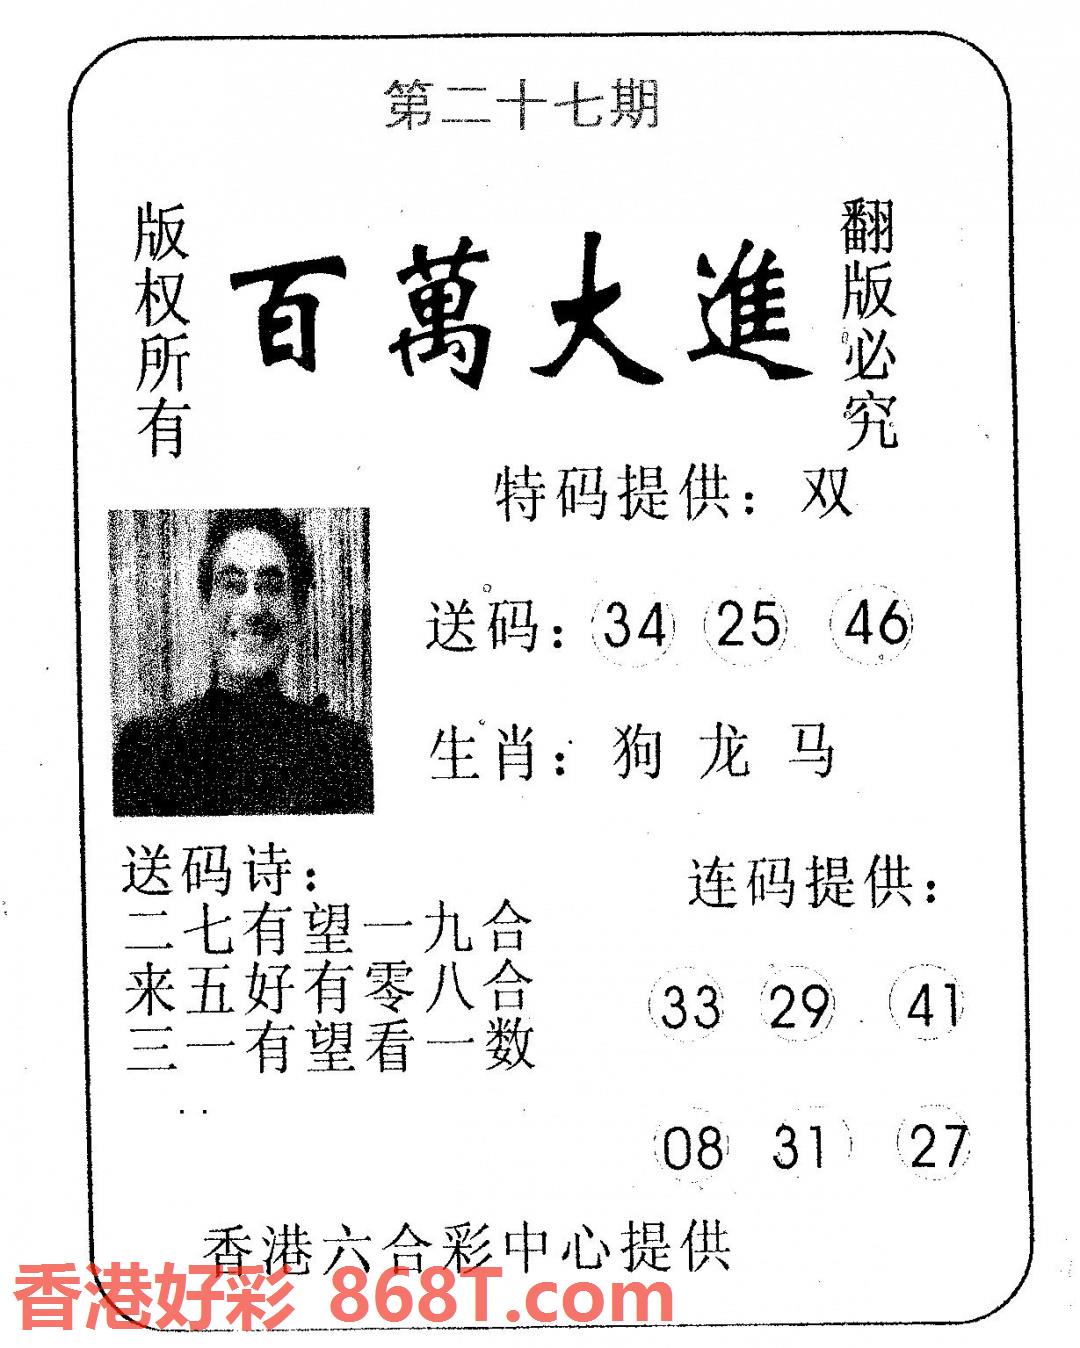 第二十七期
版权所有
百萬大進
翻版必究
特码提供：双
送码：34 25 46
生肖：狗 龙 马
送码诗：
二七有望一九合
来五好有零八合
三一有望看一数
连码提供：
33 29 41
08 31 27
香港六合彩中心提供
香港好彩 868T.com